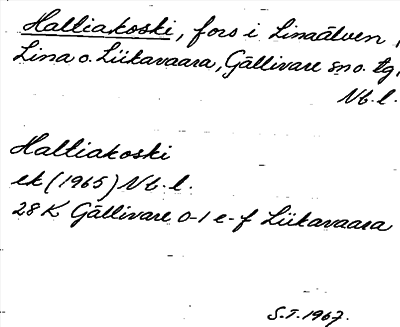 Haltiakoski, fors i Linaälven,
Lina o. Liikavaara, Gällivare sno. tg,
Nb. l.
Haltiakoski
ek (1965) Nb. l.
28 K Gällivare 0-1 e-f Liikavaara
S.T. 1967.